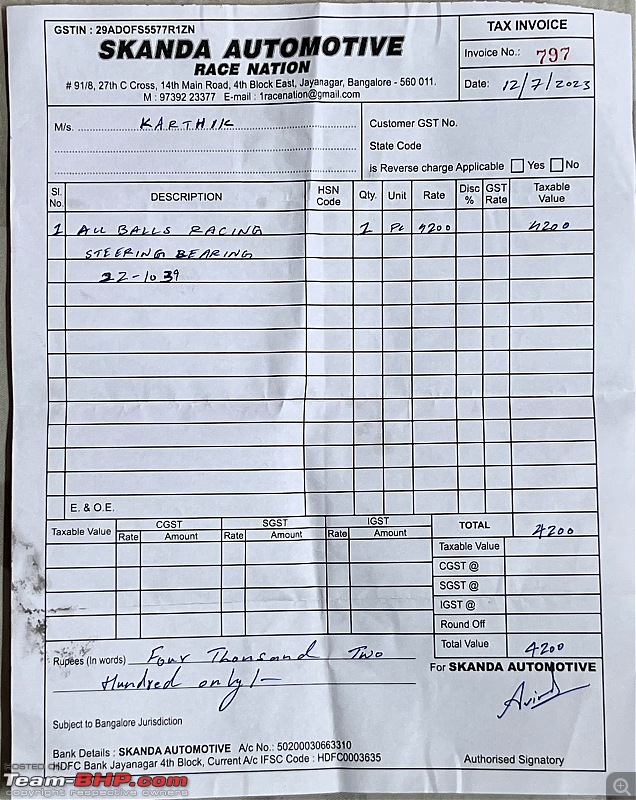 GSTIN : 29ADOFS5577R1ZN
SKANDA AUTOMOTIVE
RACE NATION
# 91/8, 27th C Cross, 14th Main Road, 4th Block East, Jayanagar, Bangalore - 560 011.
M : 97392 23377 E-mail : 1racenation@gmail.com
TAX INVOICE
Invoice No.: 797
Date: 12/7/2023
M/s. KARTHIK
Customer GST No.
State Code
is Reverse charge Applicable Yes No
Sl. No. DESCRIPTION HSN Code Qty. Unit Rate Disc % GST Rate Taxable Value
1 ALL BALLS RACING 1 Pc 4200 4200
STEERING BEARING
22-1039
E. & O.E.
Taxable Value CGST SGST IGST TOTAL 4200
Rate Amount Rate Amount Rate Amount
Taxable Value
CGST @
SGST @
IGST @
Round Off
Total Value 4200
Rupees (In words) Four Thousand Two
Hundred only/-
For SKANDA AUTOMOTIVE
Arind
Subject to Bangalore Jurisdiction
Bank Details : SKANDA AUTOMOTIVE A/c No.: 50200030663310
HDFC Bank Jayanagar 4th Block, Current A/c IFSC Code : HDFC0003635
Authorised Signatory
HOSTED ON
Team-BHP.com
copyright respective owners